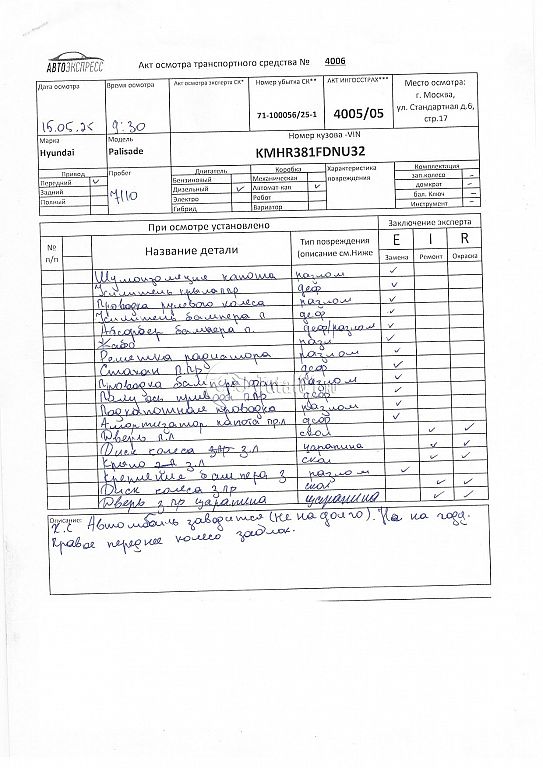 АВТОЭКСПРЕСС
Акт осмотра транспортного средства № 4006
Дата осмотра Время осмотра Акт осмотра эксперта СК* Номер убытка СК** АКТ ИНГОССТРАХ*** Место осмотра:
г. Москва,
ул. Стандартная д.6,
стр.17
15.05.25 9:30 71-100056/25-1 4005/05
Марка Модель Номер кузова -VIN
Hyundai Palisade KMHR381FDNU32
Привод Пробег Двигатель Коробка Характеристика повреждения Комплектация
Передний ✓ Бензиновый Механическая зап.колесо -
Задний Дизельный ✓ Автомат-кая ✓ домкрат -
Полный 7/10 Электро Робот бал. Ключ -
Гибрид Вариатор Инструмент -
При осмотре установлено Заключение эксперта
№ п/п Название детали Тип повреждения (описание см.Ниже E I R
Замена Ремонт Окраска
Шумоизоляция капота разлом ✓
Усилитель крыла пр деф ✓
Проводка рулевого колеса разлом ✓
Усилитель бампера п деф ✓
Абсорбер бампера п. деф/разлом ✓
разл ✓
Решетка радиатора разлом ✓
Стакан П.Пр деф ✓
Проводка бампера разлом ✓
Полуось привода ппр деф ✓
Подкапотная проводка разлом ✓
Амортизатор капота пр.л деф ✓
Дверь п.л скол ✓ ✓
Диск колеса з.л царапина ✓ ✓
Крыло з.л скол ✓ ✓
Крепление бампера з разлом ✓
Диск колеса з.пр скол ✓ ✓
Дверь з пр царапина царапина ✓ ✓
Описание: Х.С Автомобиль заводится (не на долго). На ходу.
Правое переднее колесо